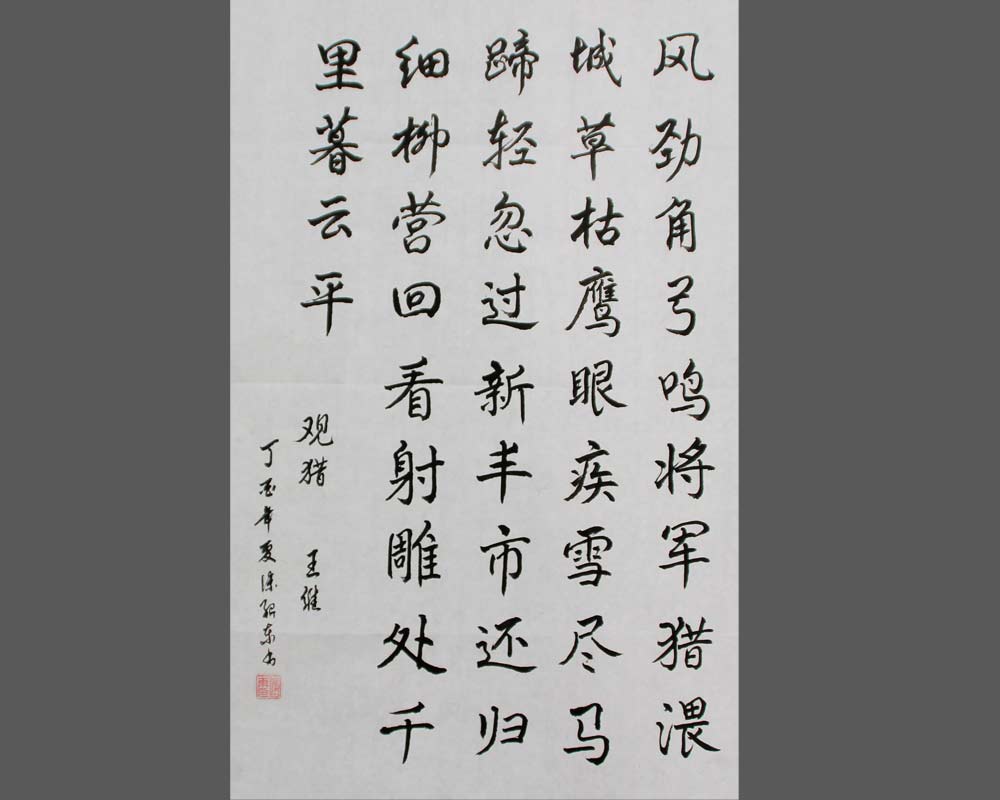 风劲角弓鸣将军猎渨
城草枯鹰眼疾雪尽马
蹄轻忽过新丰市还归
细柳营回看射雕处千
里暮云平
观猎 王维
丁酉年夏陈东书